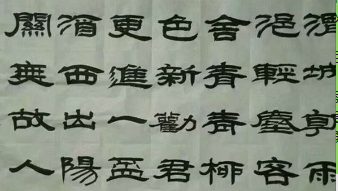 渭城朝雨
浥輕塵客
舍青青柳
色新勸君
更進一盃
酒西出陽
關無故人